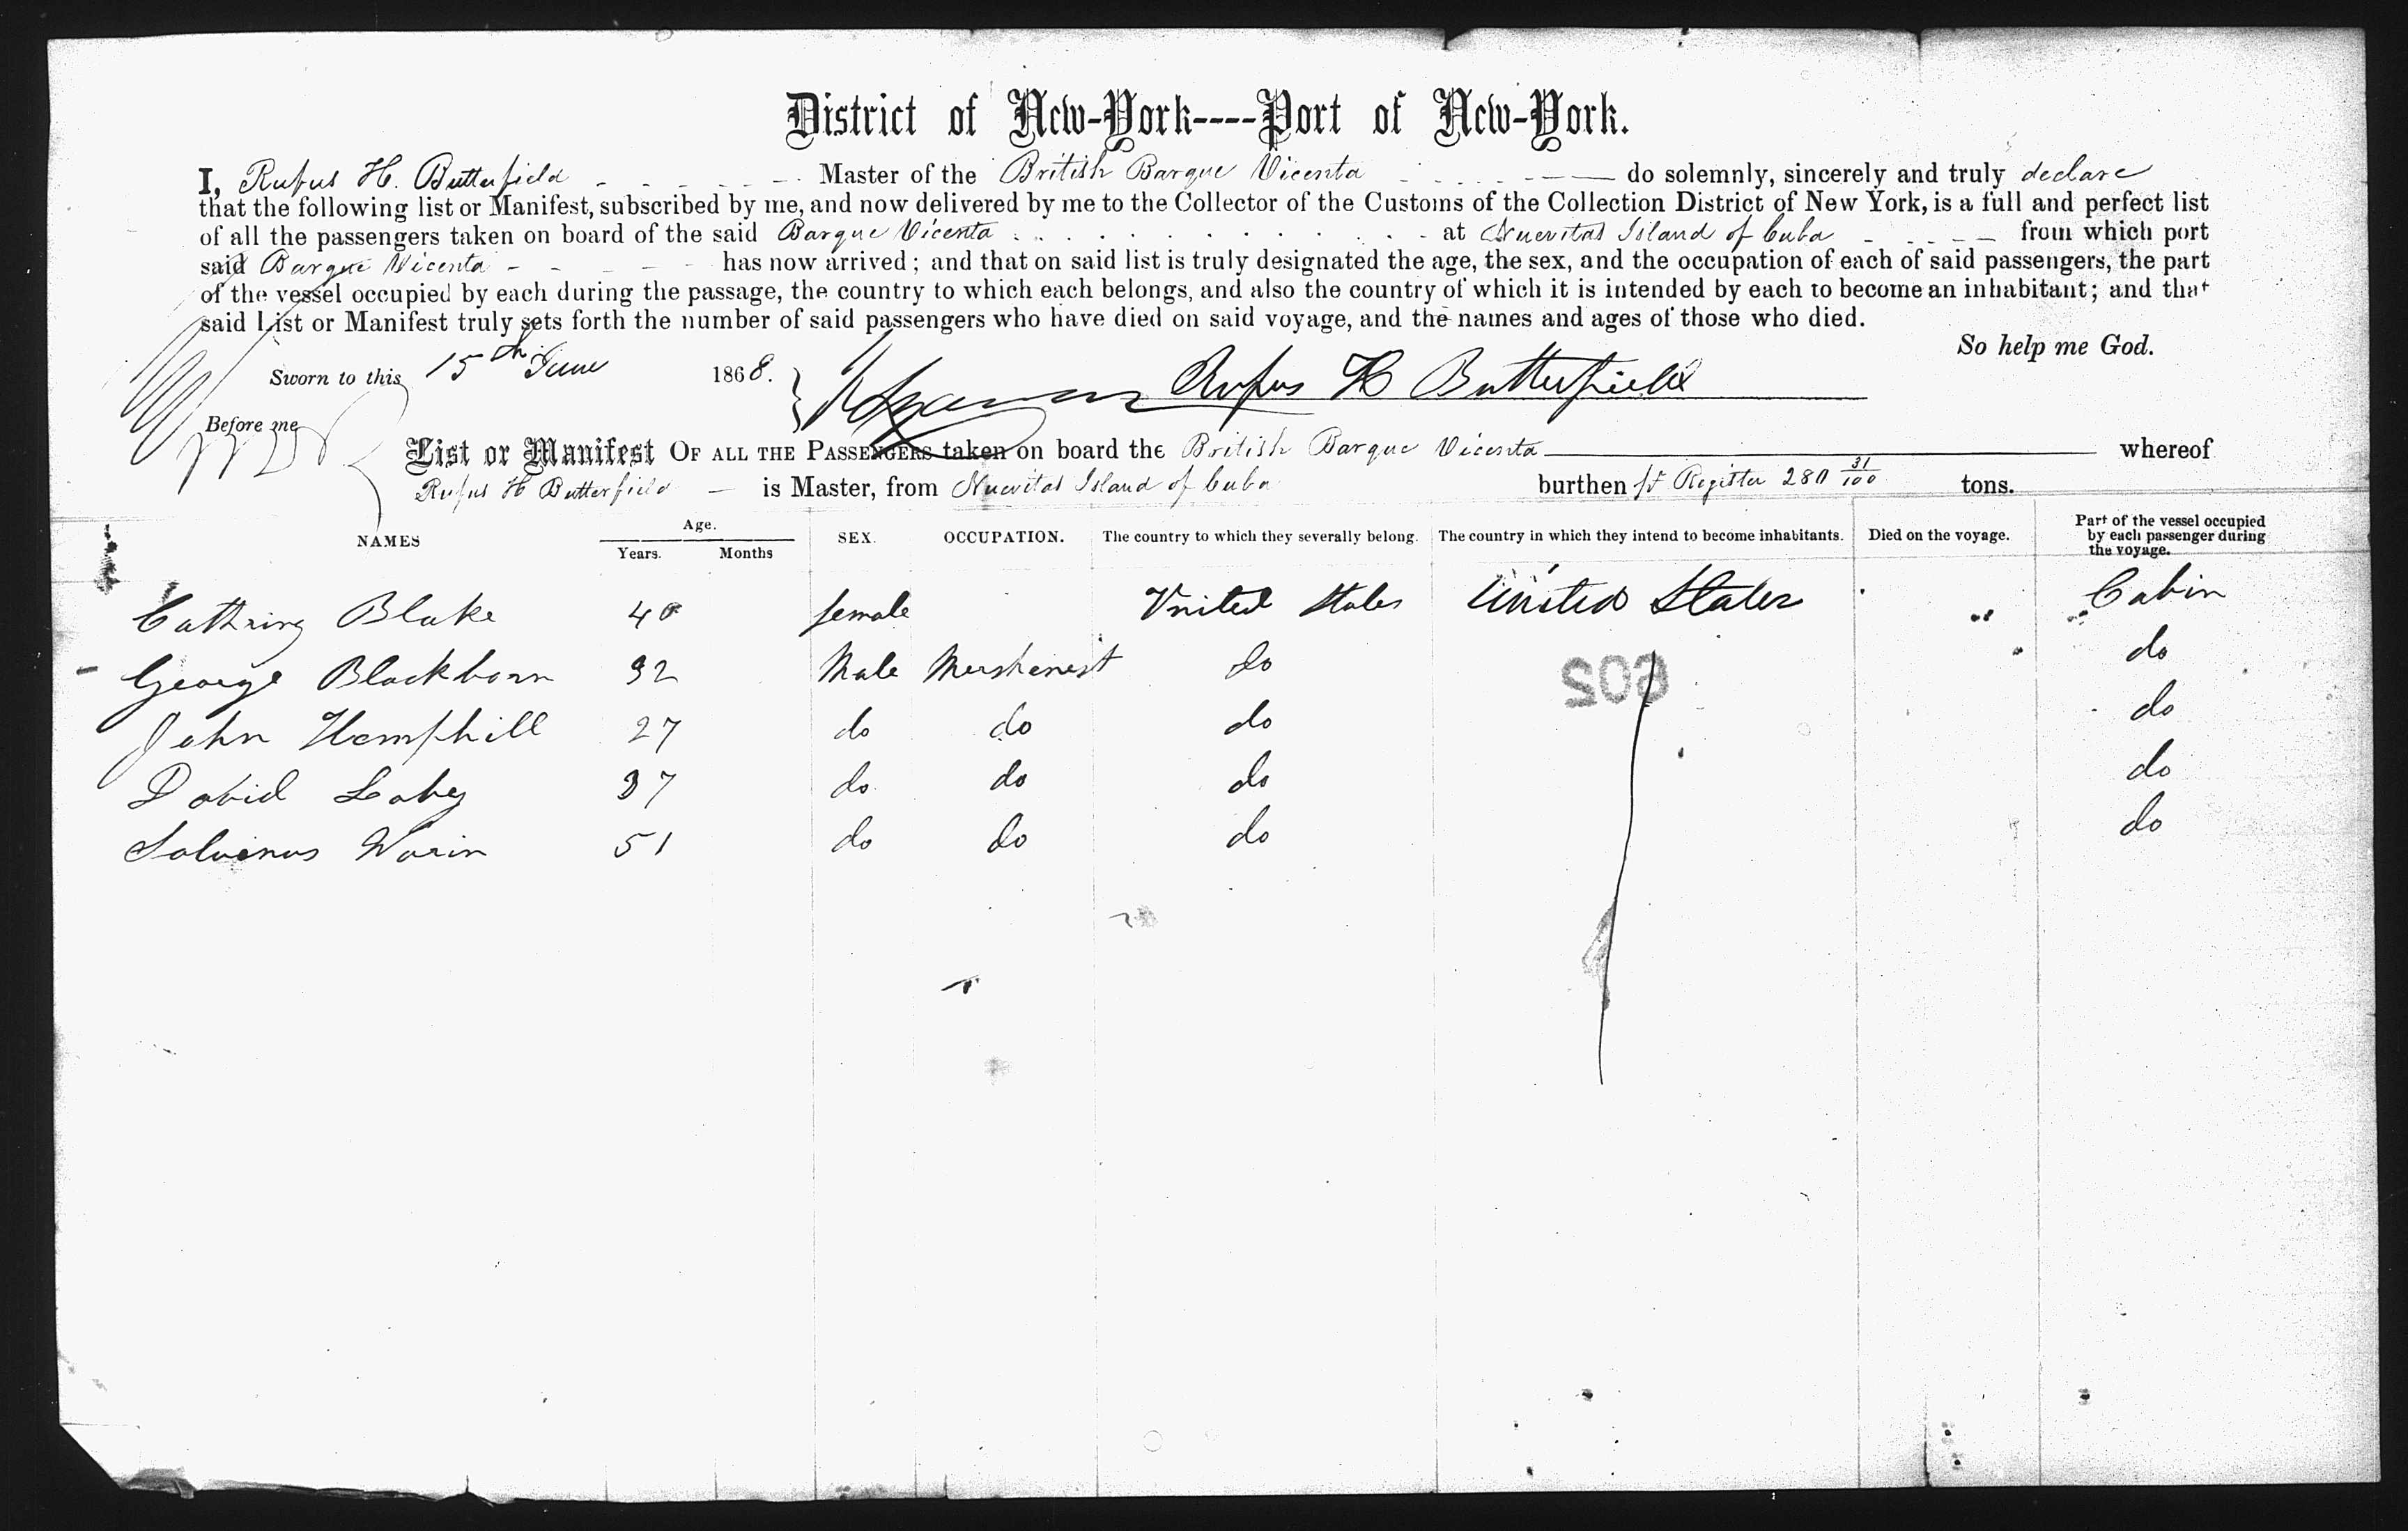 District of New-York----Port of New-York.
I, Rufus H. Butterfield Master of the British Barque Vicenta do solemnly, sincerely and truly declare
that the following list or Manifest, subscribed by me, and now delivered by me to the Collector of the Customs of the Collection District of New York, is a full and perfect list
of all the passengers taken on board of the said Barque Vicenta at Nuevitas Island of Cuba from which port
said Barque Vicenta has now arrived; and that on said list is truly designated the age, the sex, and the occupation of each of said passengers, the part
of the vessel occupied by each during the passage, the country to which each belongs, and also the country of which it is intended by each to become an inhabitant; and that
said List or Manifest truly sets forth the number of said passengers who have died on said voyage, and the names and ages of those who died.
So help me God.
Sworn to this 15th June 1868. Rufus H Butterfield
Before me
List or Manifest OF ALL THE PASSENGERS taken on board the British Barque Vicenta whereof
Rufus H Butterfield is Master, from Nuevitas Island of Cuba burthen pr Register 280 31/100 tons.
NAMES Age. Years. Months SEX. OCCUPATION. The country to which they severally belong. The country in which they intend to become inhabitants. Died on the voyage. Part of the vessel occupied by each passenger during the voyage.
Cathring Blake 40 female United States United States Cabin
George Blackborn 32 Male do do
John Hemphill 27 do do do do
David 37 do do do do
51 do do do do
602